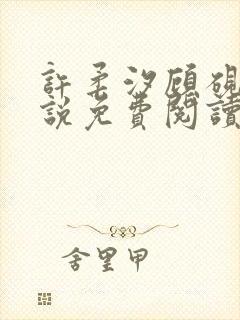 許柔汐顧硯
說免費閱讀
舍里甲